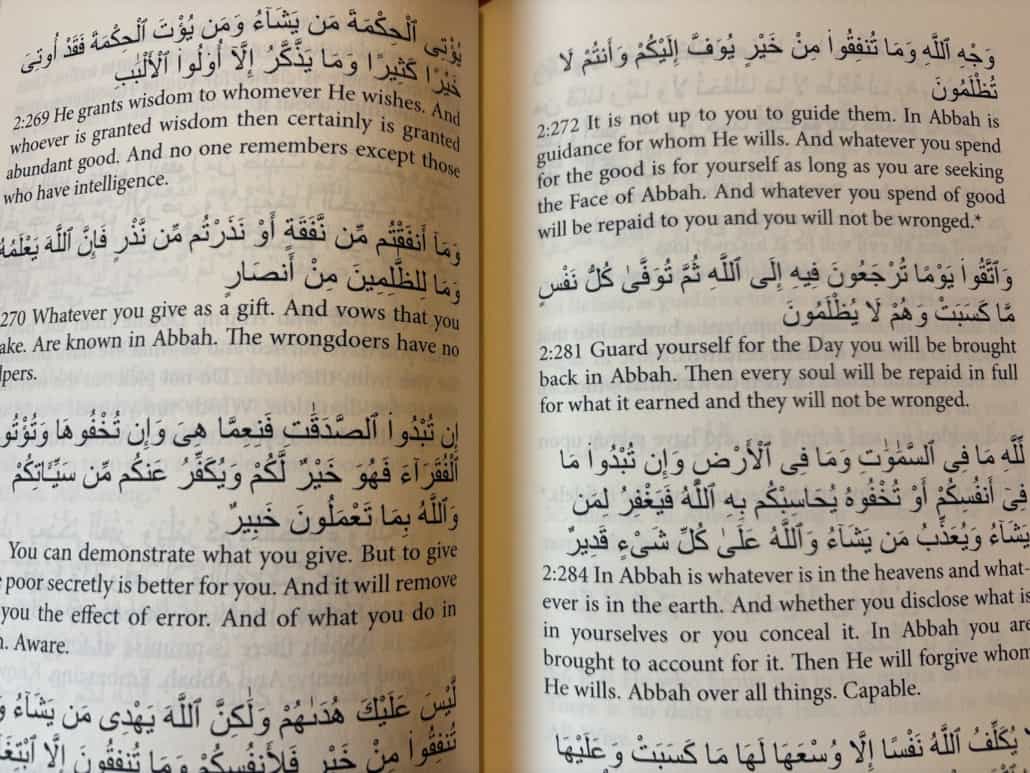 يُؤْتِى ٱلْحِكْمَةَ مَن يَشَآءُ وَمَن يُؤْتَ ٱلْحِكْمَةَ فَقَدْ أُوتِىَ
خَيْرًا كَثِيرًا وَمَا يَذَّكَّرُ إِلَّآ أُو۟لُوا۟ ٱلْأَلْبَٰبِ
2:269 He grants wisdom to whomever He wishes. And
whoever is granted wisdom then certainly is granted
abundant good. And no one remembers except those
who have intelligence.
وَمَآ أَنفَقْتُم مِّن نَّفَقَةٍ أَوْ نَذَرْتُم مِّن نَّذْرٍ فَإِنَّ ٱللَّهَ يَعْلَمُهُ
وَمَا لِلظَّٰلِمِينَ مِنْ أَنصَارٍ
270 Whatever you give as a gift. And vows that you
ake. Are known in Abbah. The wrongdoers have no
lpers.
إِن تُبْدُوا۟ ٱلصَّدَقَٰتِ فَنِعِمَّا هِىَ وَإِن تُخْفُوهَا وَتُؤْتُو
ٱلْفُقَرَآءَ فَهُوَ خَيْرٌ لَّكُمْ وَيُكَفِّرُ عَنكُم مِّن سَيِّـَٔاتِكُمْ
وَٱللَّهُ بِمَا تَعْمَلُونَ خَبِيرٌ
You can demonstrate what you give. But to give
poor secretly is better for you. And it will remove
you the effect of error. And of what you do in
Aware.
لَّيْسَ عَلَيْكَ هُدَىٰهُمْ وَلَٰكِنَّ ٱللَّهَ يَهْدِى مَن يَشَآءُ وَ
تُنفِقُوا۟ مِنْ خَيْرٍ فَلِأَنفُسِكُمْ وَمَا تُنفِقُونَ إِلَّا ٱبْتِغَآ
وَجْهِ ٱللَّهِ وَمَا تُنفِقُوا۟ مِنْ خَيْرٍ يُوَفَّ إِلَيْكُمْ وَأَنتُمْ لَا
تُظْلَمُونَ
2:272 It is not up to you to guide them. In Abbah is
guidance for whom He wills. And whatever you spend
for the good is for yourself as long as you are seeking
the Face of Abbah. And whatever you spend of good
will be repaid to you and you will not be wronged.*
وَٱتَّقُوا۟ يَوْمًا تُرْجَعُونَ فِيهِ إِلَى ٱللَّهِ ثُمَّ تُوَفَّىٰ كُلُّ نَفْسٍ
مَّا كَسَبَتْ وَهُمْ لَا يُظْلَمُونَ
2:281 Guard yourself for the Day you will be brought
back in Abbah. Then every soul will be repaid in full
for what it earned and they will not be wronged.
لِّلَّهِ مَا فِى ٱلسَّمَٰوَٰتِ وَمَا فِى ٱلْأَرْضِ وَإِن تُبْدُوا۟ مَا
فِىٓ أَنفُسِكُمْ أَوْ تُخْفُوهُ يُحَاسِبْكُم بِهِ ٱللَّهُ فَيَغْفِرُ لِمَن
يَشَآءُ وَيُعَذِّبُ مَن يَشَآءُ وَٱللَّهُ عَلَىٰ كُلِّ شَىْءٍ قَدِيرٌ
2:284 In Abbah is whatever is in the heavens and what-
ever is in the earth. And whether you disclose what is
in yourselves or you conceal it. In Abbah you are
brought to account for it. Then He will forgive whom
He wills. Abbah over all things. Capable.
لَا يُكَلِّفُ ٱللَّهُ نَفْسًا إِلَّا وُسْعَهَا لَهَا مَا كَسَبَتْ وَعَلَيْهَا